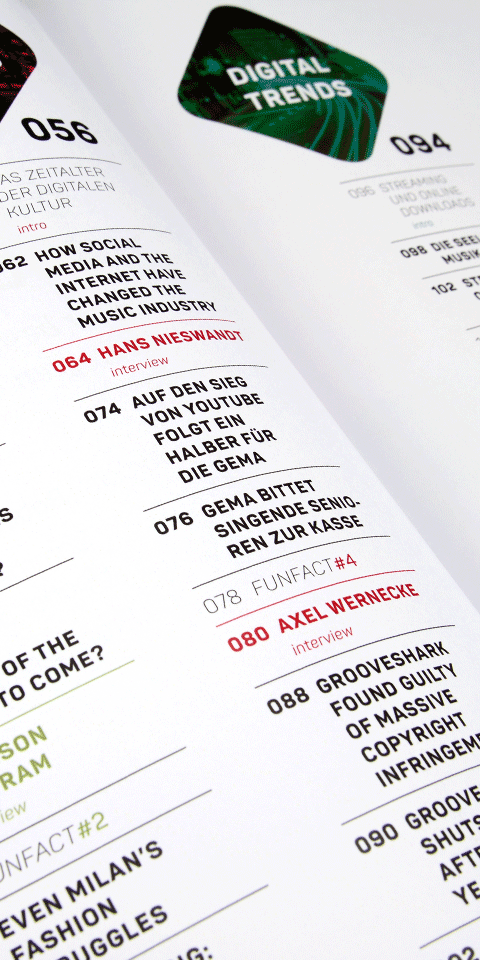 056
AS ZEITALTER
DER DIGITALEN
KULTUR
intro
062 HOW SOCIAL
MEDIA AND THE
INTERNET HAVE
CHANGED THE
MUSIC INDUSTRY
064 HANS NIESWANDT
interview
074 AUF DEN SIEG
VON YOUTUBE
FOLGT EIN
HALBER FÜR
DIE GEMA
076 GEMA BITTET
SINGENDE SENIO-
REN ZUR KASSE
078 FUNFACT#4
080 AXEL WERNECKE
interview
088 GROOVESHARK
FOUND GUILTY
OF MASSIVE
COPYRIGHT
INFRINGEM
090 GROOVE
SHUTS
AFTE
YE
DIGITAL
TRENDS
094
096 STREAMING
UND ONLINE
DOWNLOADS
intro
098 DIE SEEL
MUSIK
102 STR
OF THE
TO COME?
SON
RAM
iew
UNFACT#2
EVEN MILAN'S
FASHION
RUGGLES
NG: